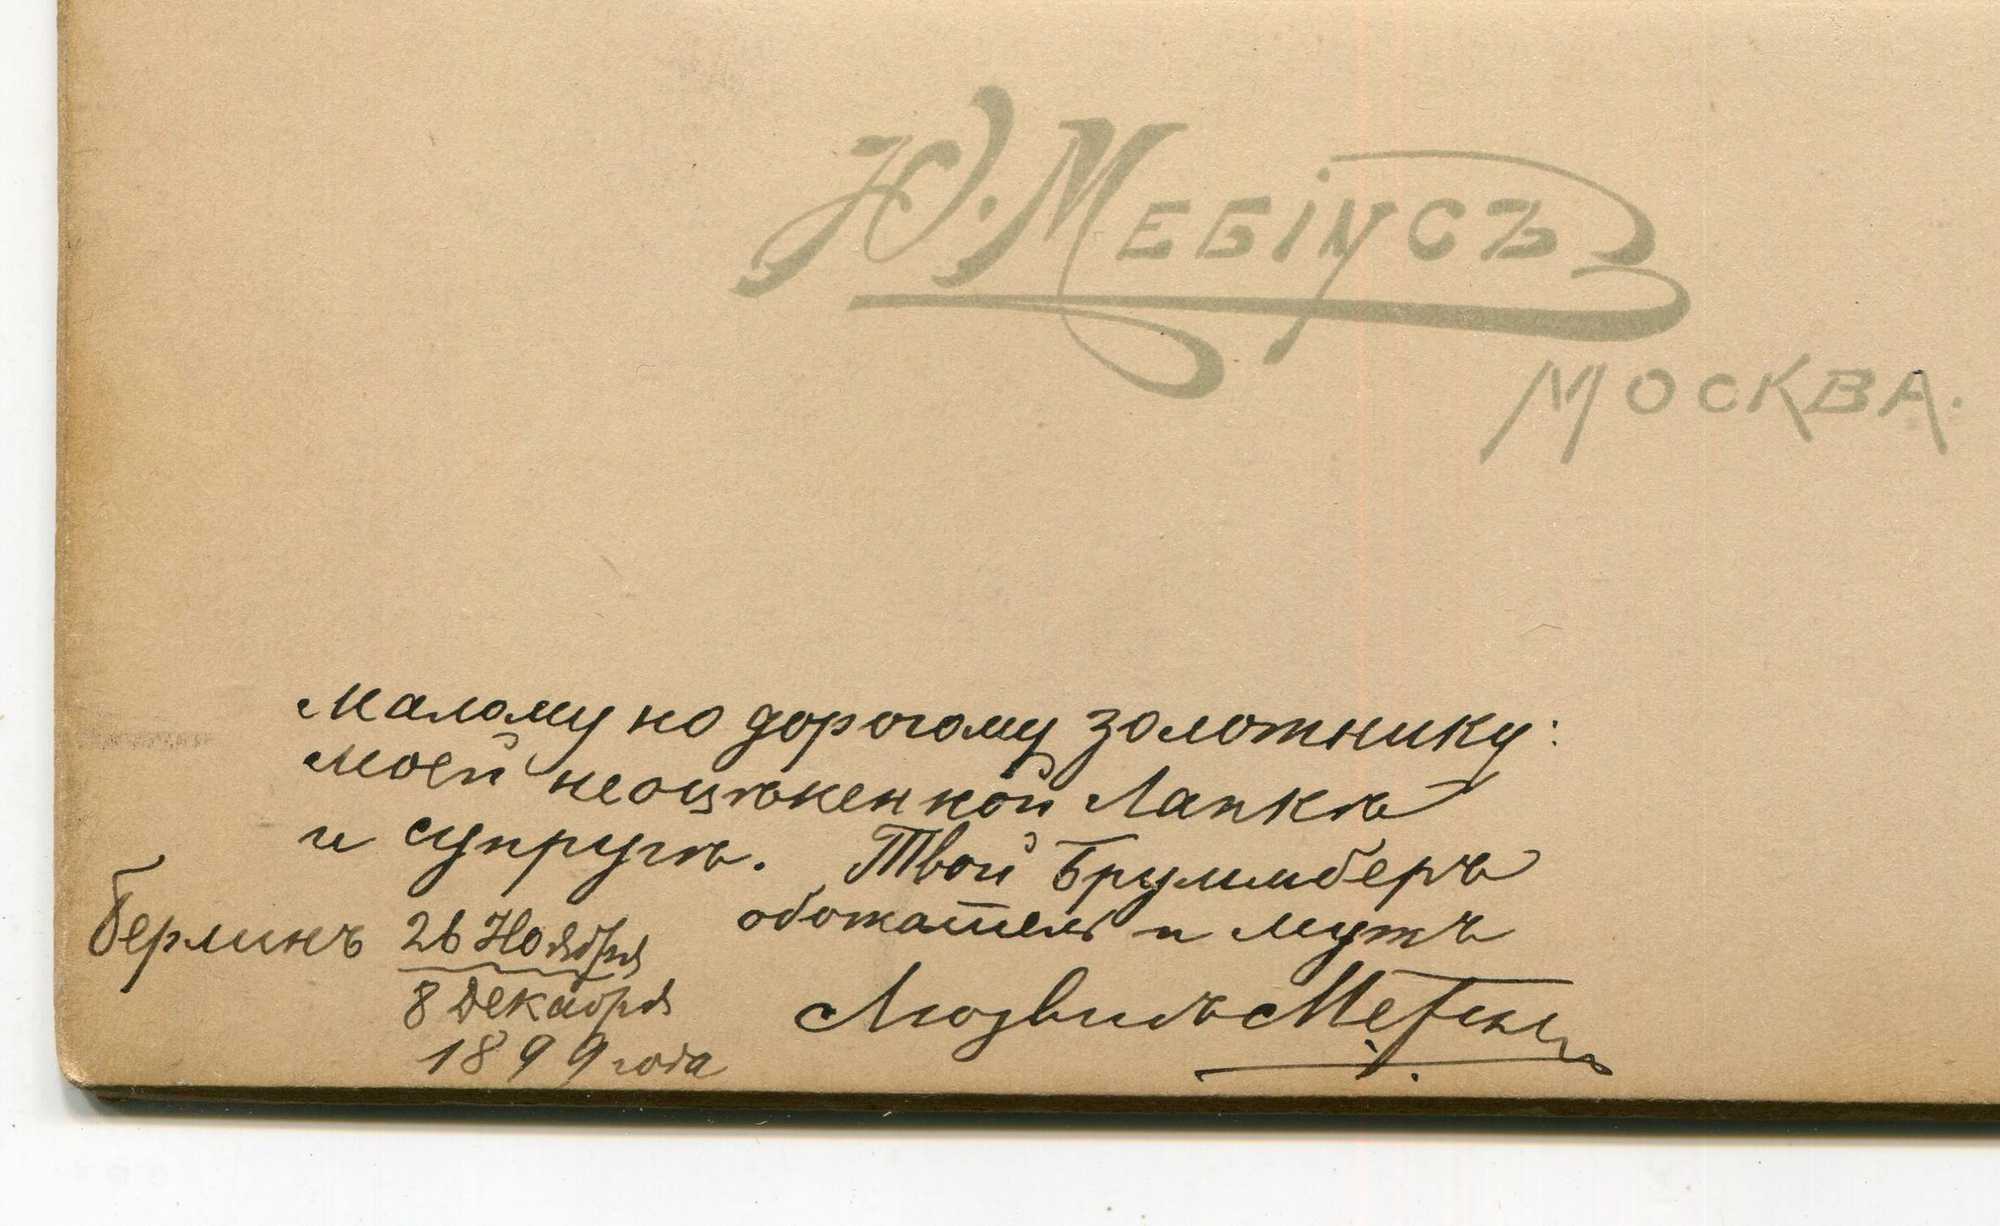 Ю. Мебіусъ
Москва.
Малому но дорогому золотнику:
моей неоцѣненной Лапкѣ
и супругѣ. Твой Бруммберъ
обожатель и мужъ
Людвигъ
Берлинъ 26 Ноября
8 Декабря
1899 года